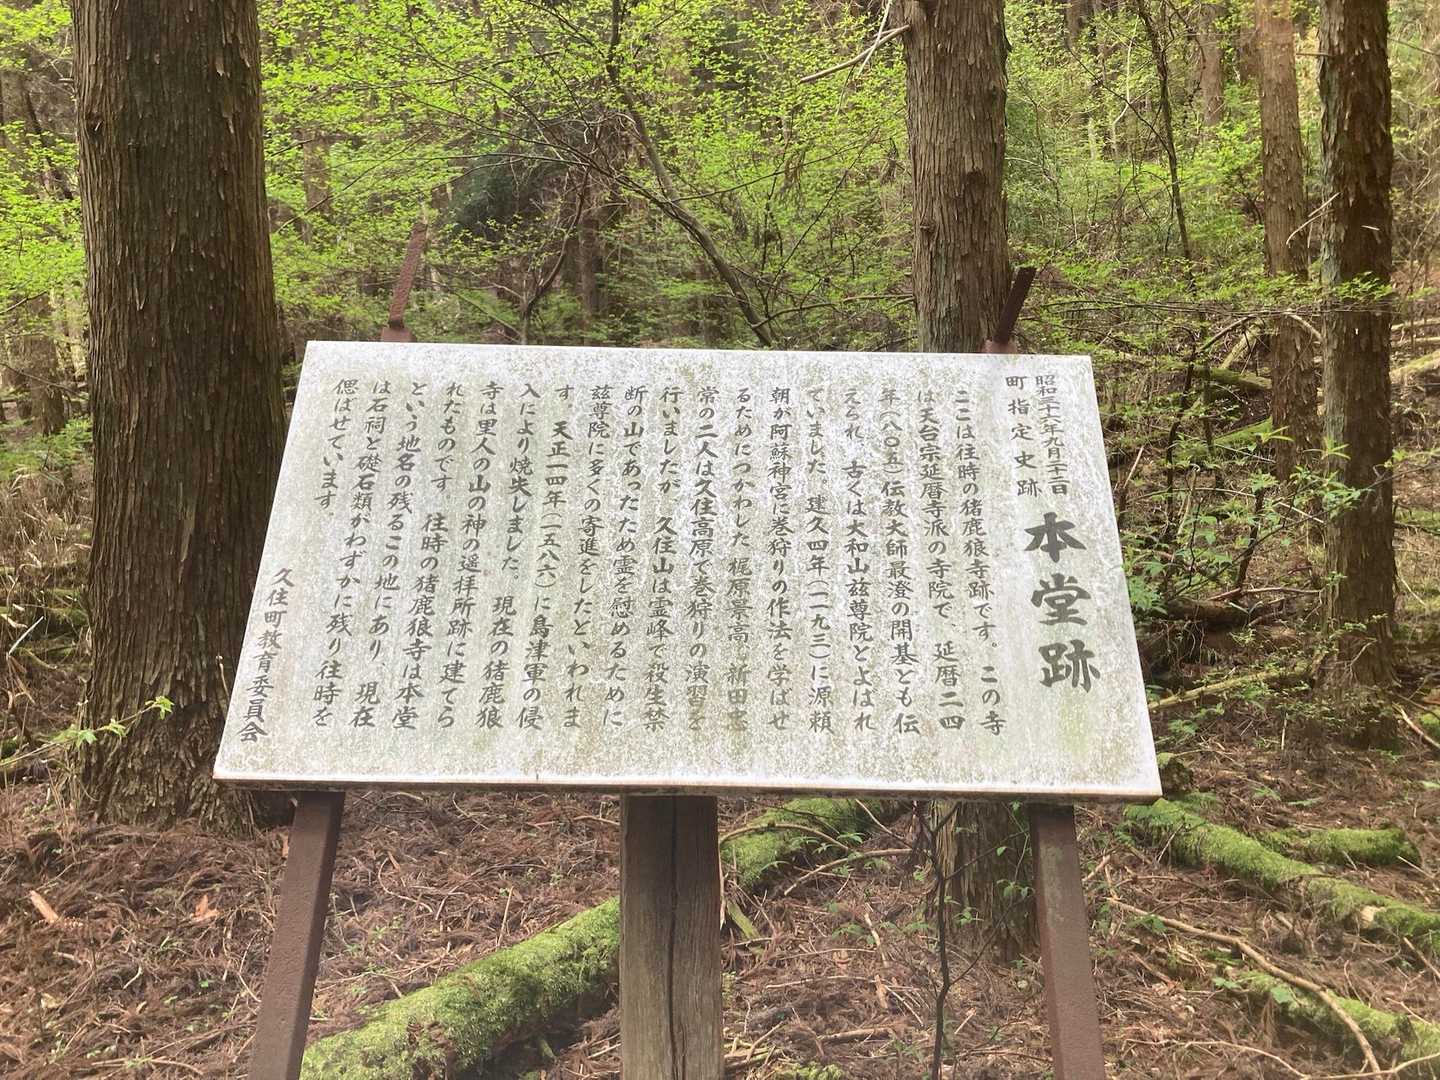 昭和三十一年九月二十二日
町指定史跡
本堂跡
ここは往時の猪鹿狼寺跡です。この寺
は天台宗延暦寺派の寺院で、延暦二四
年(八〇五)伝教大師最澄の開基とも伝
えられ、古くは大和山玆尊院とよばれ
ていました。建久四年(一一九三)に源頼
朝が阿蘇神宮に巻狩りの作法を学ばせ
るためにつかわした梶原景高、新田忠
常の二人は久住高原で巻狩りの演習を
行いましたが、久住山は霊峰で殺生禁
断の山であったため霊を慰めるために
玆尊院に多くの寄進をしたといわれま
す。天正一四年(一五八六)に島津軍の侵
入により焼失しました。現在の猪鹿狼
寺は里人の山の神の遥拝所跡に建てら
れたものです。往時の猪鹿狼寺は本堂
という地名の残るこの地にあり、現在
は石祠と礎石類がわずかに残り往時を
偲ばせています。
久住町教育委員会